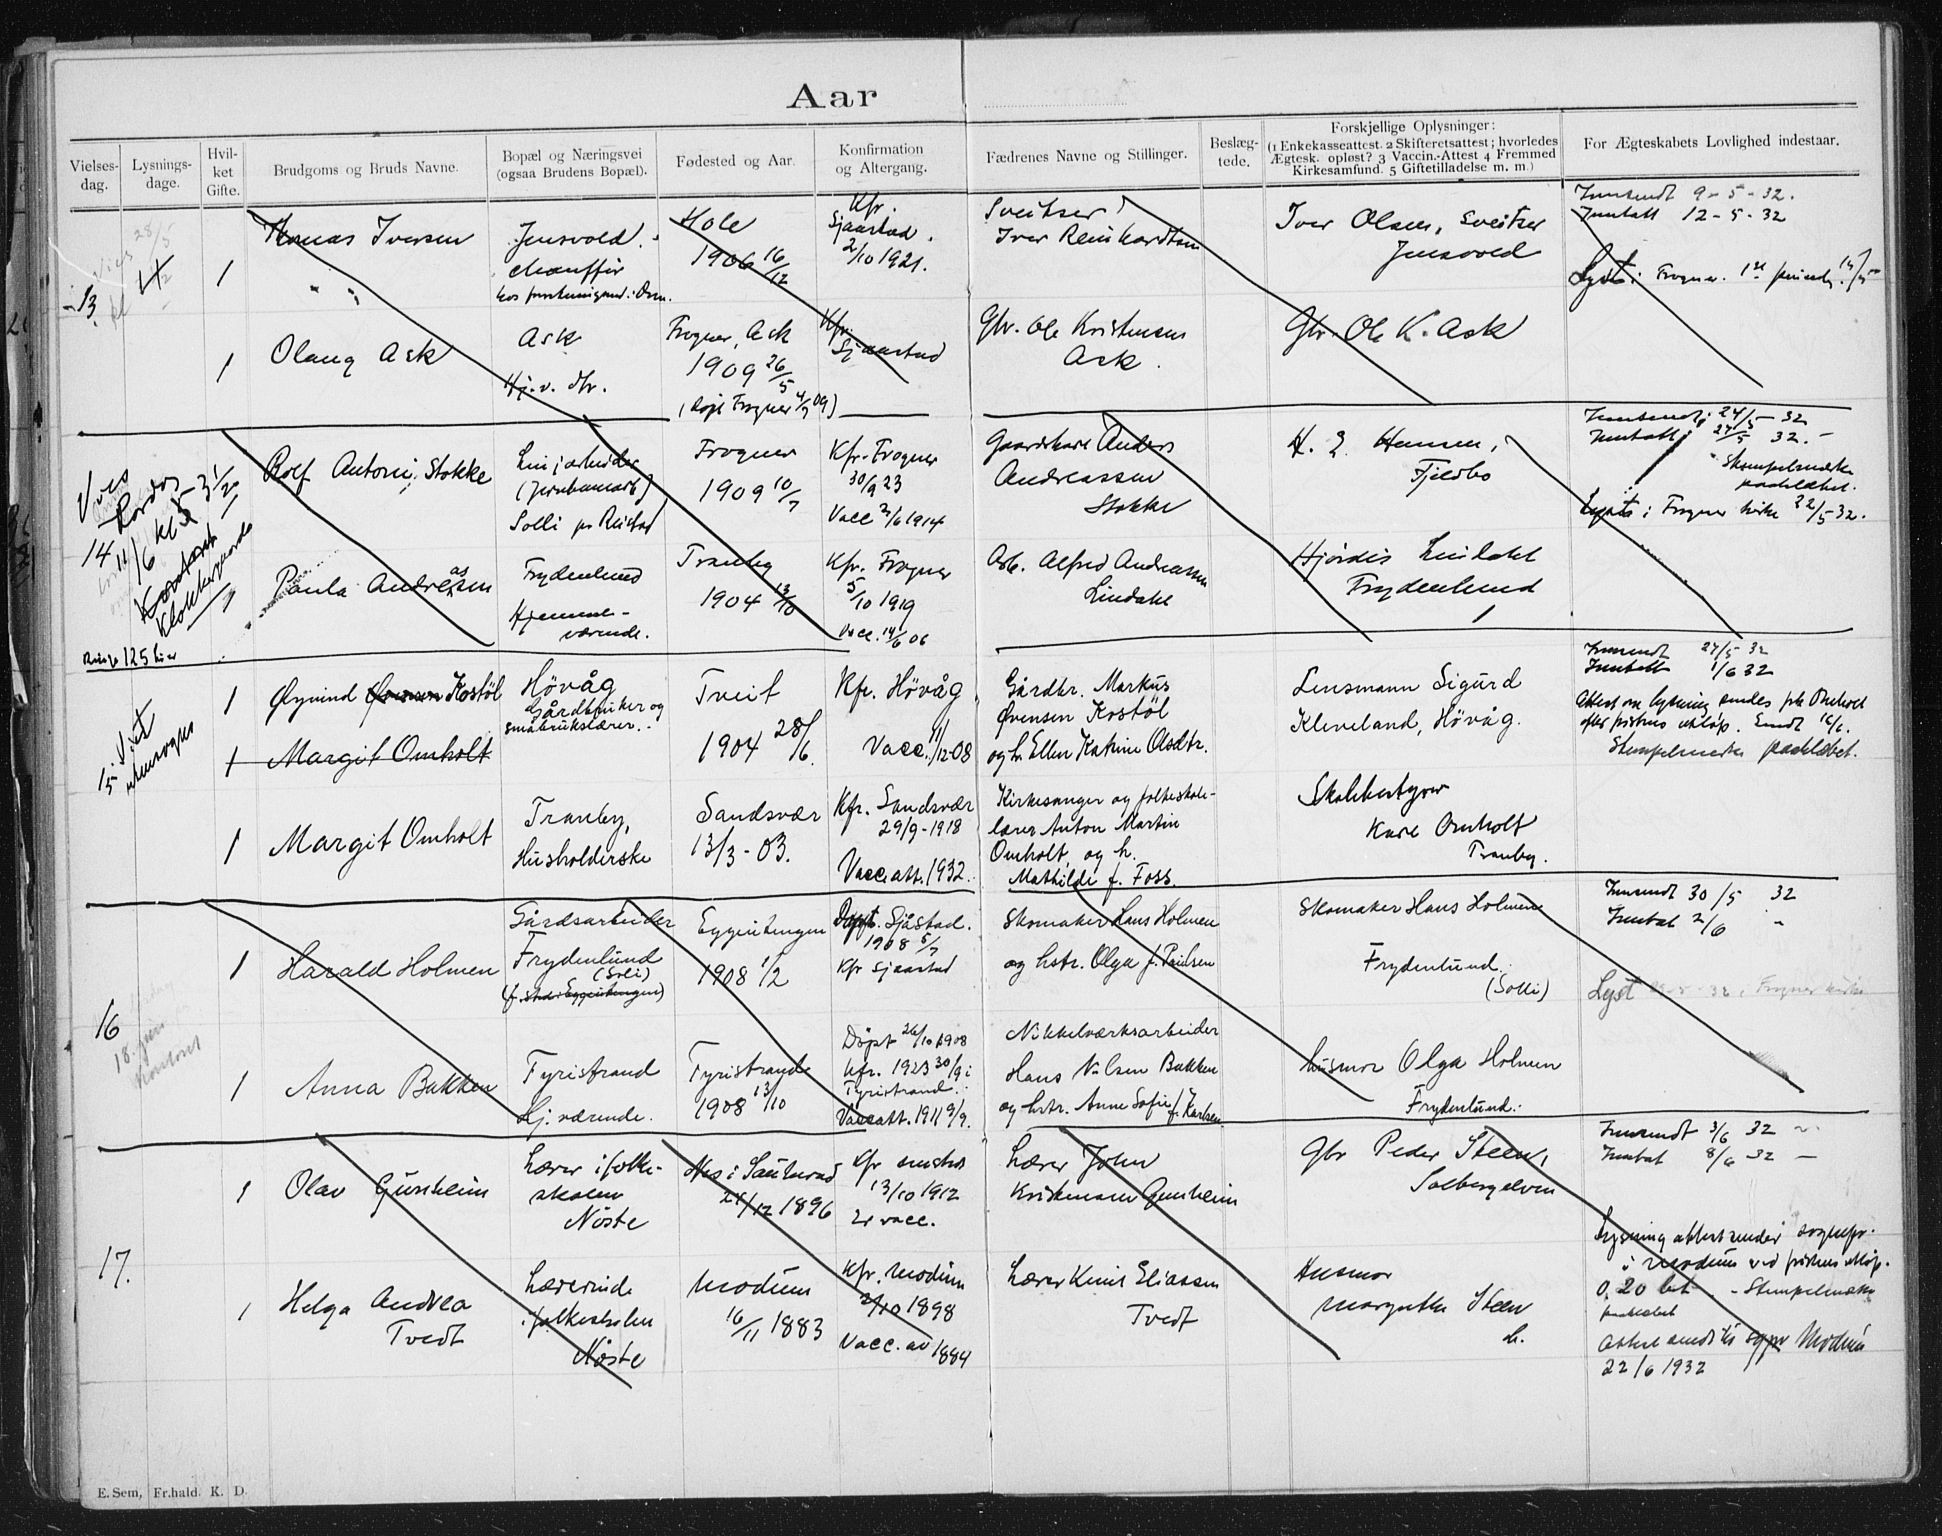 Aar
Vielses-dag.
Lysnings-dage.
Hvil-ket Gifte.
Brudgoms og Bruds Navne.
Bopæl og Næringsvei (ogsaa Brudens Bopæl).
Fødested og Aar.
Konfirmation og Altergang.
Fædrenes Navne og Stillinger.
Beslæg-tede.
Forskjellige Oplysninger:
(1 Enkekasseattest. 2 Skifteretsattest; hvorledes
Ægtesk. opløst? 3 Vaccin.-Attest 4 Fremmed
Kirkesamfund. 5 Giftetilladelse m. m.)
For Ægteskabets Lovlighed indestaar.
13.
28/5
1
Iversen
Jensvold.
chauffør
Hole
1906 16/12
Kfr.
Sjaastad.
2/10 1921.
Sveitser
Iver Reinhardtsen
Iver Olsen, Sveitser
Jensvold
Innsendt 9-5-32.
Inntatt 12-5-32
Lyst i Frogner.
1
Olaug Ask
Ask
Hj. v. dtr.
Frogner, Ask
1909 26/5
(døpt Frogner 4/7 09)
Kfr.
Sjaastad
Gbr. Ole Kristensen
Ask.
Gbr. Ole K. Ask
14
Vies
Lørdag
11/6 kl 5
Kontoret
Klokkergaarden
Rolf Antoni Stokke
Linjearbeider
(Jernbanearb)
Solli pr Reistad
Frogner
1909 10/7
Kfr. Frogner
30/9 23
Vacc 2/6 1914
Gaardskarl Anders
Andreassen
Stokke
H. E. Hansen,
Fjeldbo
Innsendt 24/5 32
Inntatt 27/5 32. -
Stempelmerke
paaklæbet.
Lyst i Frogner kirke 22/5 32.
Paula Andreassen
Frydenlund
Hjemme-
værende.
Tranby
1904 13/10
Kfr. Frogner
5/10 1919
Vacc. 14/6 06
Arb. Alfred Andreassen
Lindahl
Hjørdis Lindahl
Frydenlund
15
Viet
utensogns
1
Øyvind Øvensen Kostöl
Hövåg
Gårdbruker og
småbrukslærer.
Tveit
1904 28/6.
Kfr. Hövåg
Vacc. 11/12-08
Gårdbr. Markus
Øvensen Kostöl
og h. Ellen Katrine Olsdtr.
Lensmann Sigurd
Kleveland, Hövåg.
Innsendt 27/5 32
Inntatt 1/6 32
Attest om lysning sendes frk Omholt
efter fristens utløp. Sendt 16/6.
Stempelmerke paaklæbet.
1
Margit Omholt
1
Margit Omholt
Tranby,
Husholderske
Sandsvær
13/3 - 03.
Kfr. Sandsvær
29/9 - 1918
Vacc. att. 1932.
Kirkesanger og folkeskole-
lærer Anton Martin
Omholt og h.
Mathilde f. Foss.
Skolebestyrer
Karl Omholt
Tranby.
16
18. juni
Kontoret
1
Harald Holmen
Gårdsarbeider
Frydenlund
(Solli)
Eggeentengen
1908 1/2
Døpt. Sjåstad.
1908 5/7
Kfr Sjaastad
Skomaker Hans Holmen
og hstr. Olga f. Paulsen
Skomaker Hans Holmen
Frydenlund.
(Solli)
Innsendt 30/5 32
Inntat 2/6 -
Lyst -5-32 i Frogner kirke
1
Anna Bakken
Tyristrand
Hj. værende.
Tyristrand
1908 13/10
Döpt 26/10 1908
Kfr. 1923 30/9 i
Tyristrand.
Vaccatt. 1911 9/9.
Nikkelværksarbeider
Hans Nilsen Bakken
og hstr. Anne Sofie f. Karlsen
Husmor Olga Holmen
Frydenlund.
17.
1
Olav Gunheim
Lærer i folke-
skolen
Nöste
Nes i Sauherad
1896
13/10 1912
Er vacc.
Lærer John
Kristensen Gunheim
Gbr Peder Steen,
Solbergelven
Innsendt 3/6 32
Inntat 8/6 32 -
Lysning attest sender sognepr.
i Modum ved fristens utløp.
0.20 bet. - Stempelmerke
paaklæbet
Attest sendt til sogpr Modum
22/6 1932
1
Helga Andrea
Tvedt
Lærerinde
i folkeskolen
Nöste
Modum
16/11 1883
Kfr. Modum
2/10 1898
Vacc. av 1884
Lærer Knut Eliassen
Tvedt
Husmor
Margrethe Steen
h.
E. Sem, Fr.hald. K. D.